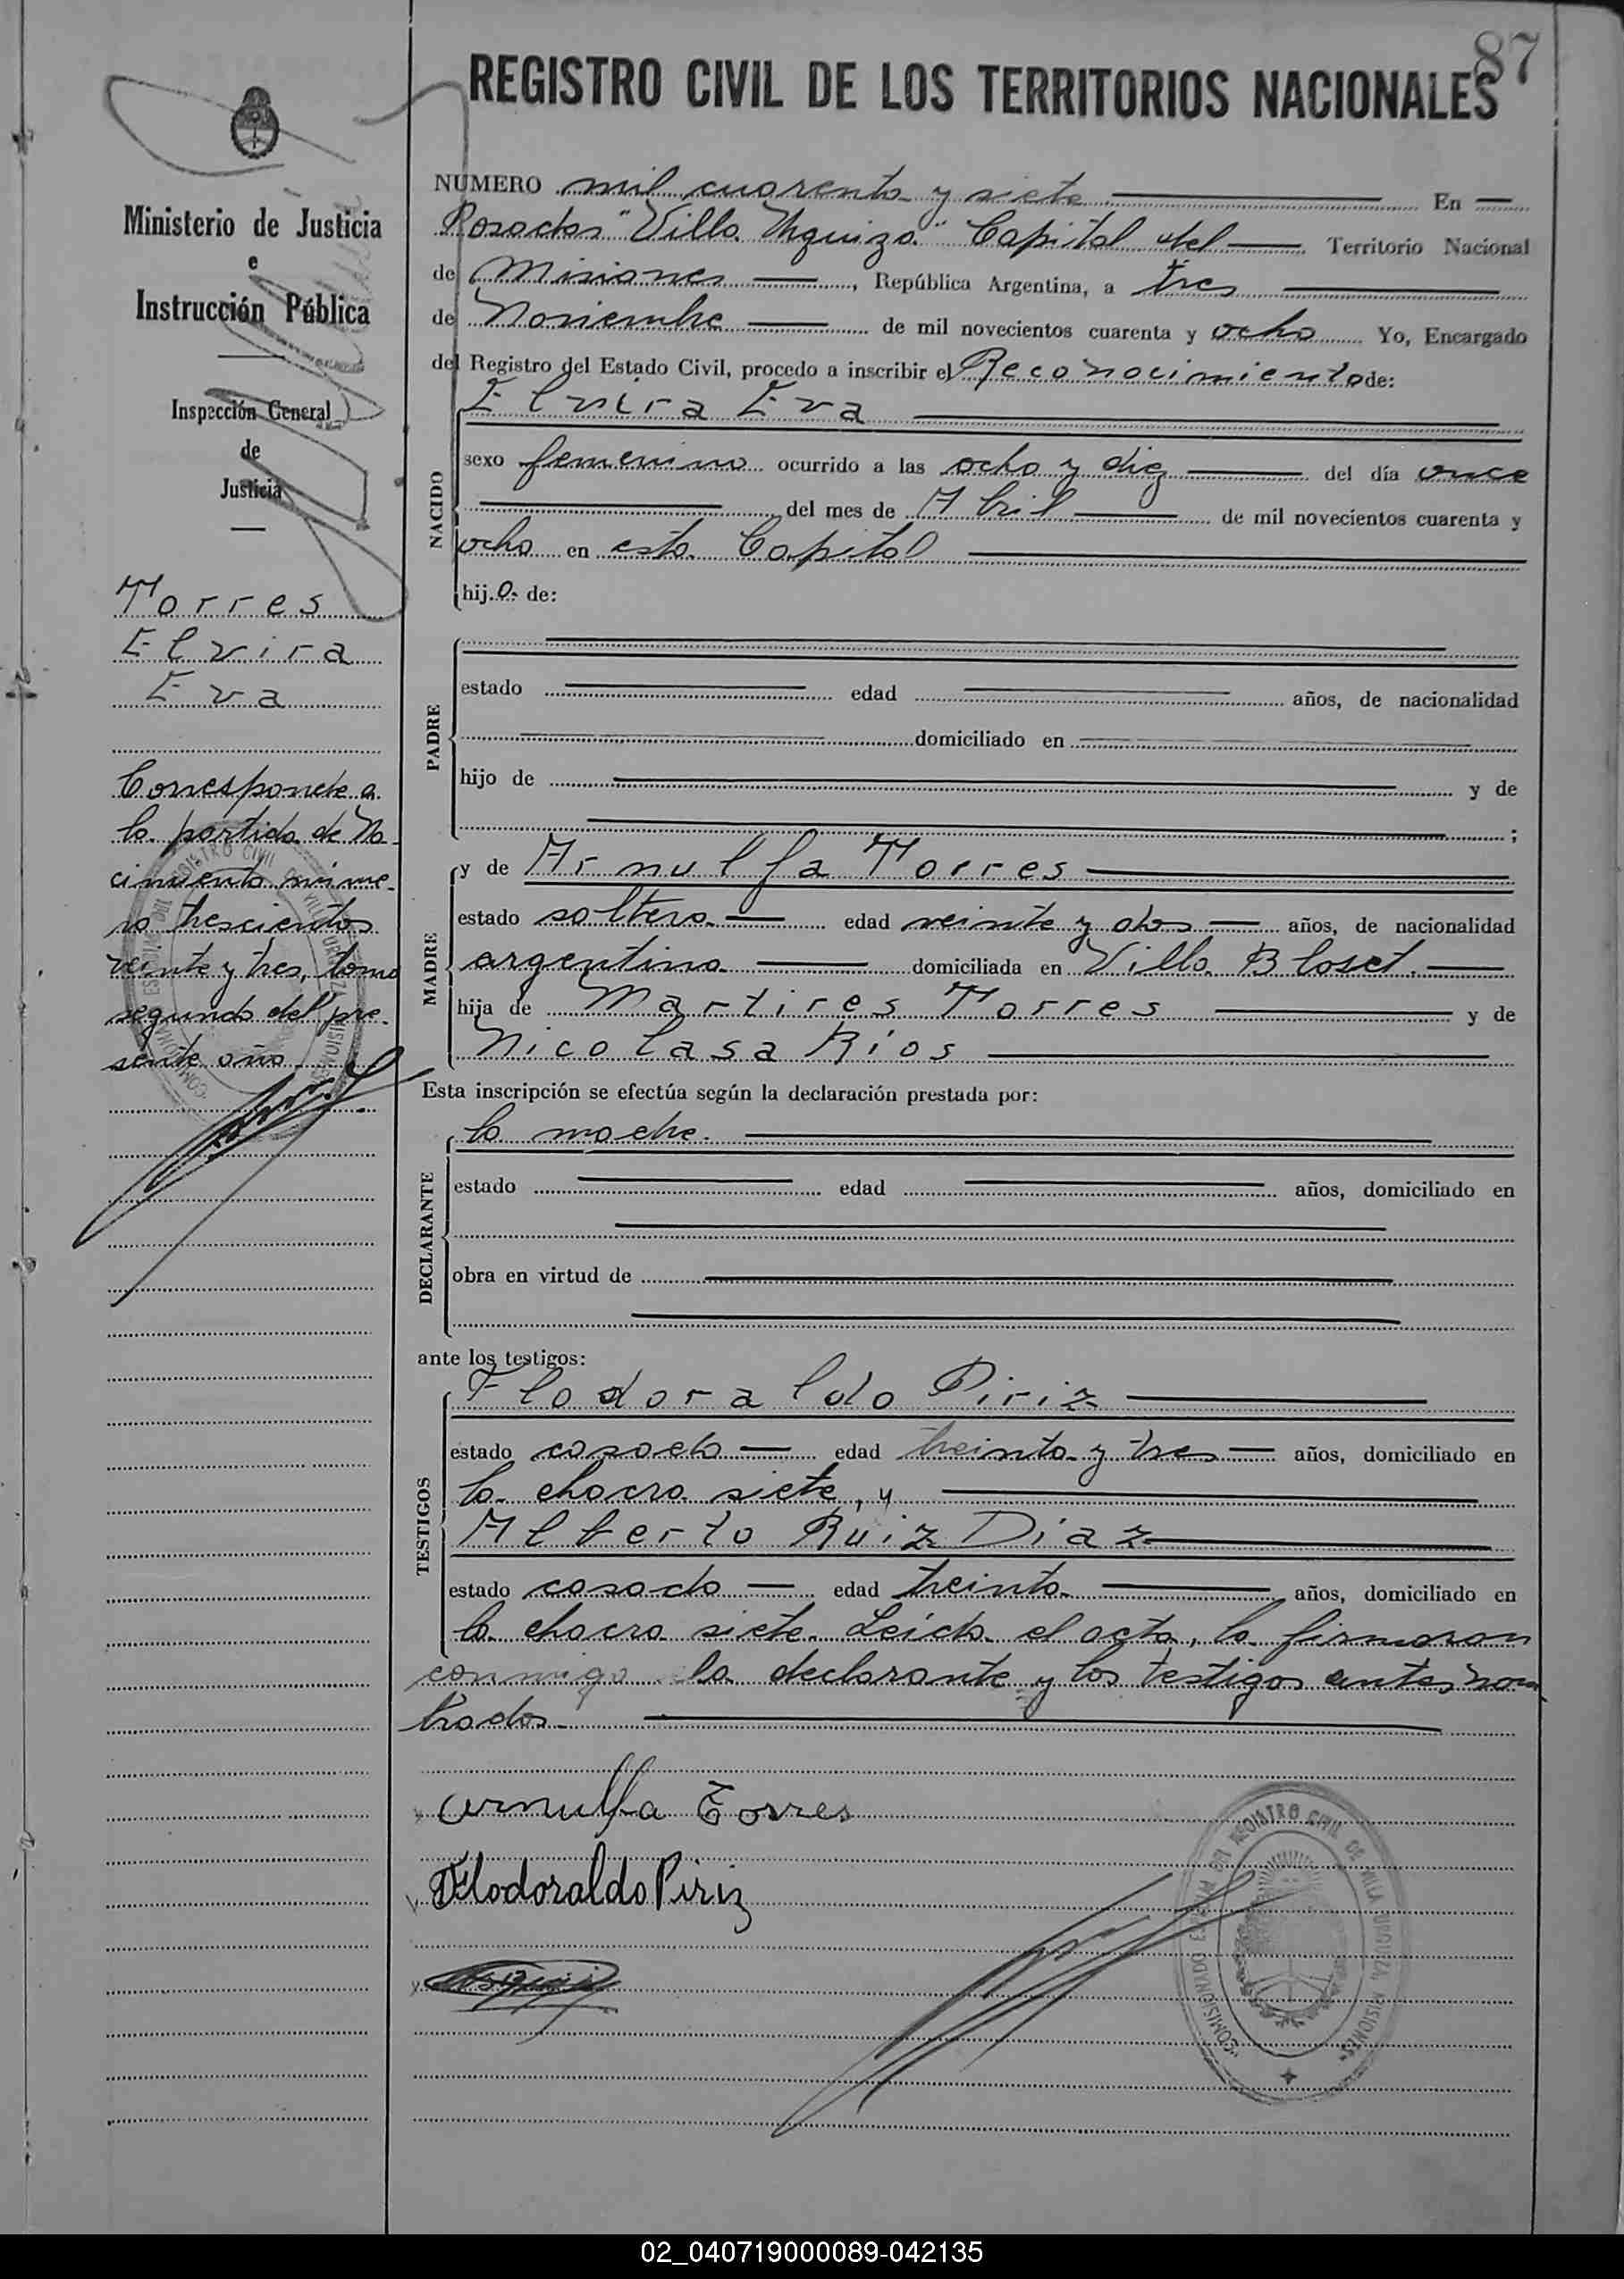 87
REGISTRO CIVIL DE LOS TERRITORIOS NACIONALES
Ministerio de Justicia
e
Instrucción Pública
Inspección General
de
Justicia
Torres
Elvira
Eva
Corresponde a
la partida de Na-
cimiento núme-
ro trescientos
veinte y tres, tomo
segundo del pre-
sente año
NUMERO mil cuarenta y siete En
Posadas "Villa Urquiza" Capital del Territorio Nacional
de Misiones, República Argentina, a tres
de Noviembre de mil novecientos cuarenta y ocho Yo, Encargado
del Registro del Estado Civil, procedo a inscribir el Reconocimiento de:
Elvira Eva
NACIDO
sexo femenino ocurrido a las ocho y diez del día once
del mes de Abril de mil novecientos cuarenta y
ocho en esta Capital
hija de:
PADRE
estado edad años, de nacionalidad
domiciliado en
hijo de y de
;
MADRE
y de Arnulfa Torres
estado soltera edad veinte y dos años, de nacionalidad
argentina domiciliada en Villa Bloset.
hija de Martires Torres y de
Nicolasa Ríos
Esta inscripción se efectúa según la declaración prestada por:
DECLARANTE
la madre.
estado edad años, domiciliado en
obra en virtud de
ante los testigos:
TESTIGOS
Flodoraldo Piriz
estado casado edad treinta y tres años, domiciliado en
la chacra siete, y
Alberto Ruiz Díaz
estado casado edad treinta años, domiciliado en
la chacra siete. Leída el acta, la firmaron
conmigo la declarante y los testigos antes nom
brados.
Arnulfa Torres
Flodoraldo Piriz
COMISIONADO ESPECIAL DEL REGISTRO CIVIL DE VILLA URQUIZA, MISIONES
02_040719000089-042135